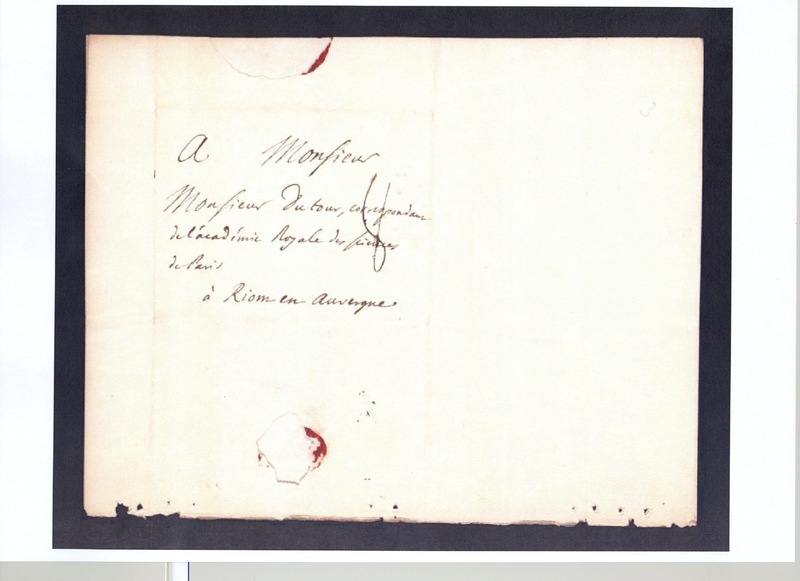 A Monsieur
Monsieur Dutour, correspondant
de l'académie Royale des sciences
de Paris
à Riom en Auvergne